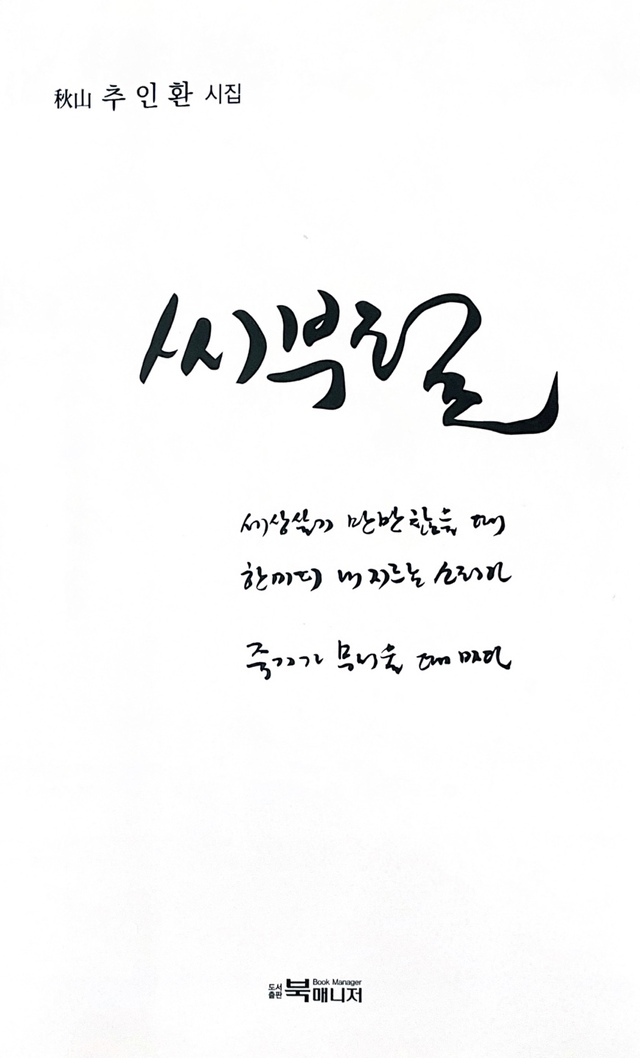 秋山 추인환 시집
씨부럴
세상살기 만만찮을 때
한마디 내지르는 소리야
죽기가 무서울 때마다
Book Manager
도서출판 북매니저